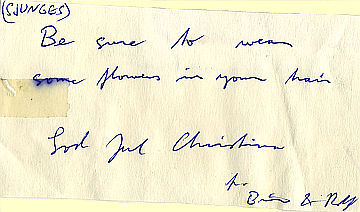 (SJUNGES)
Be sure to wear
some flowers in your hair
God Jul Christina
fr.